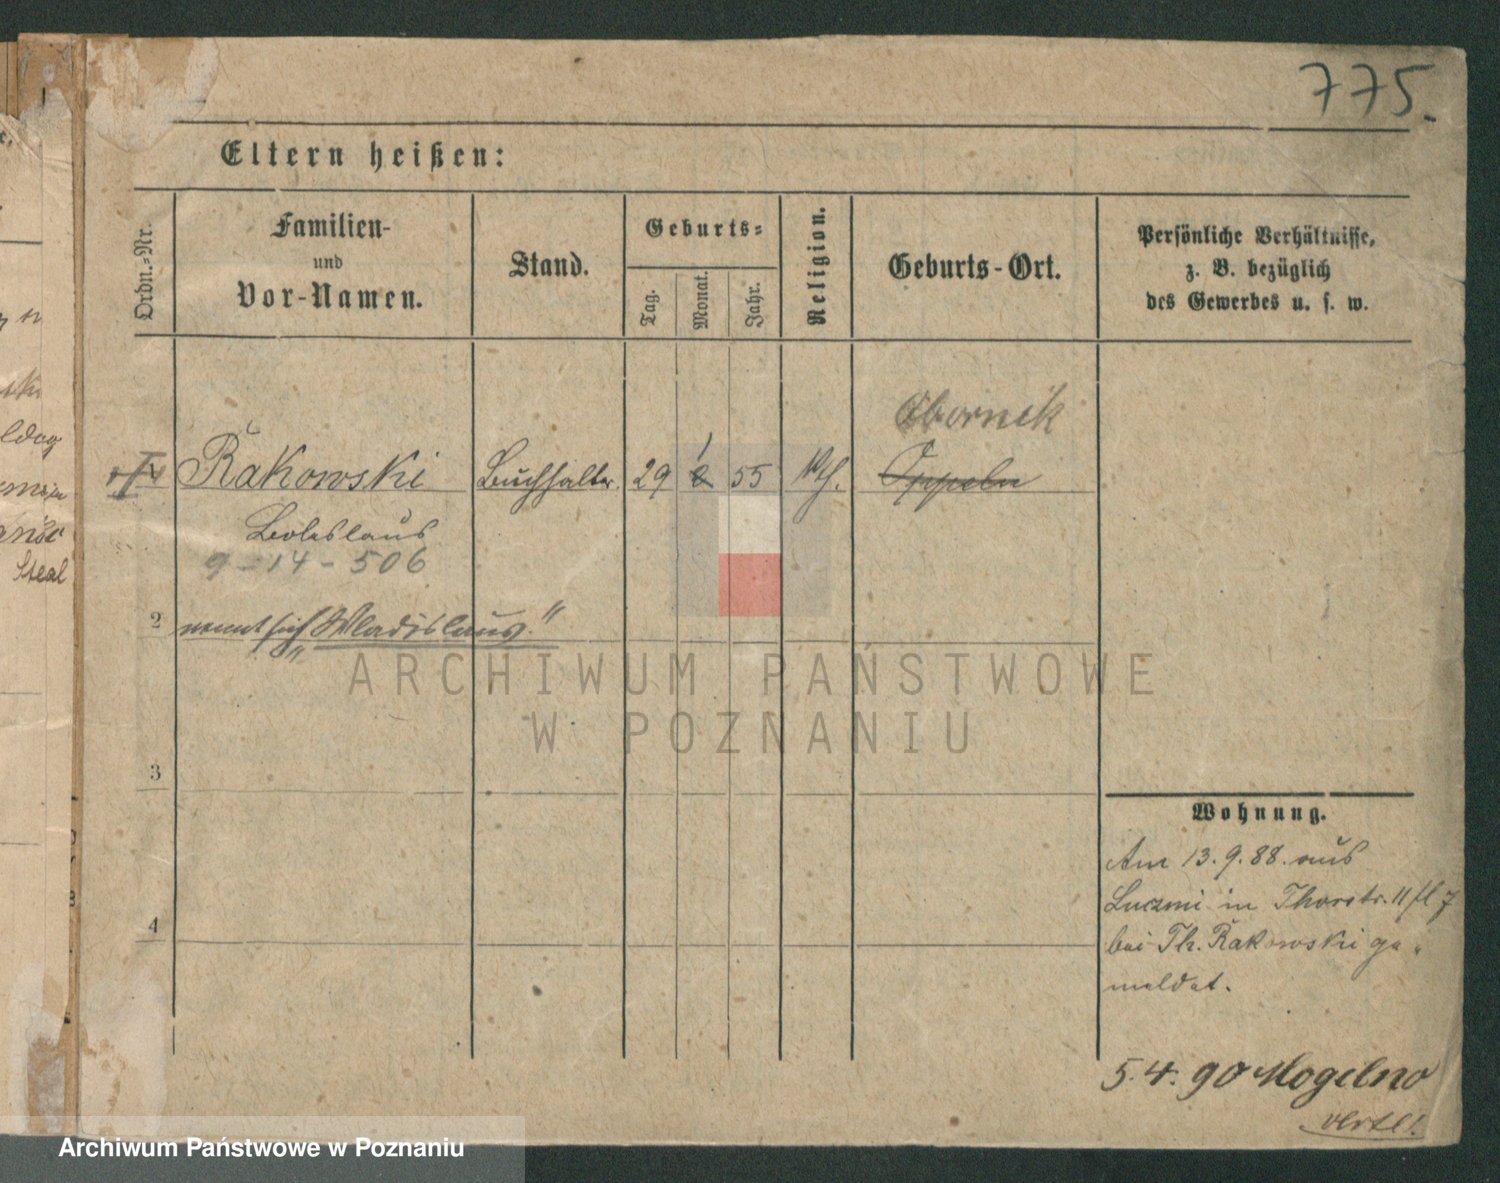 775.
Eltern heißen:
Ordn.-Nr.
Familien-
und
Vor-Namen.
Stand.
Geburts-
Tag.
Monat.
Jahr.
Religion.
Geburts-Ort.
Persönliche Verhältnisse,
z. B. bezüglich
des Gewerbes u. s. w.
Obornik
Rakowski
Buchhalter.
29
1
2
55
kth.
Oppeln
Boleslaus
9-14-506
2
nennt sich „Wladislaus."
ARCHIWUM PAŃSTWOWE
W POZNANIU
3
4
Wohnung.
Am 13.9.88. aus
in Thorstr. 11
bei Th. Rakowski ge-
meldet.
5.4.90 Mogelno
verte!
Archiwum Państwowe w Poznaniu